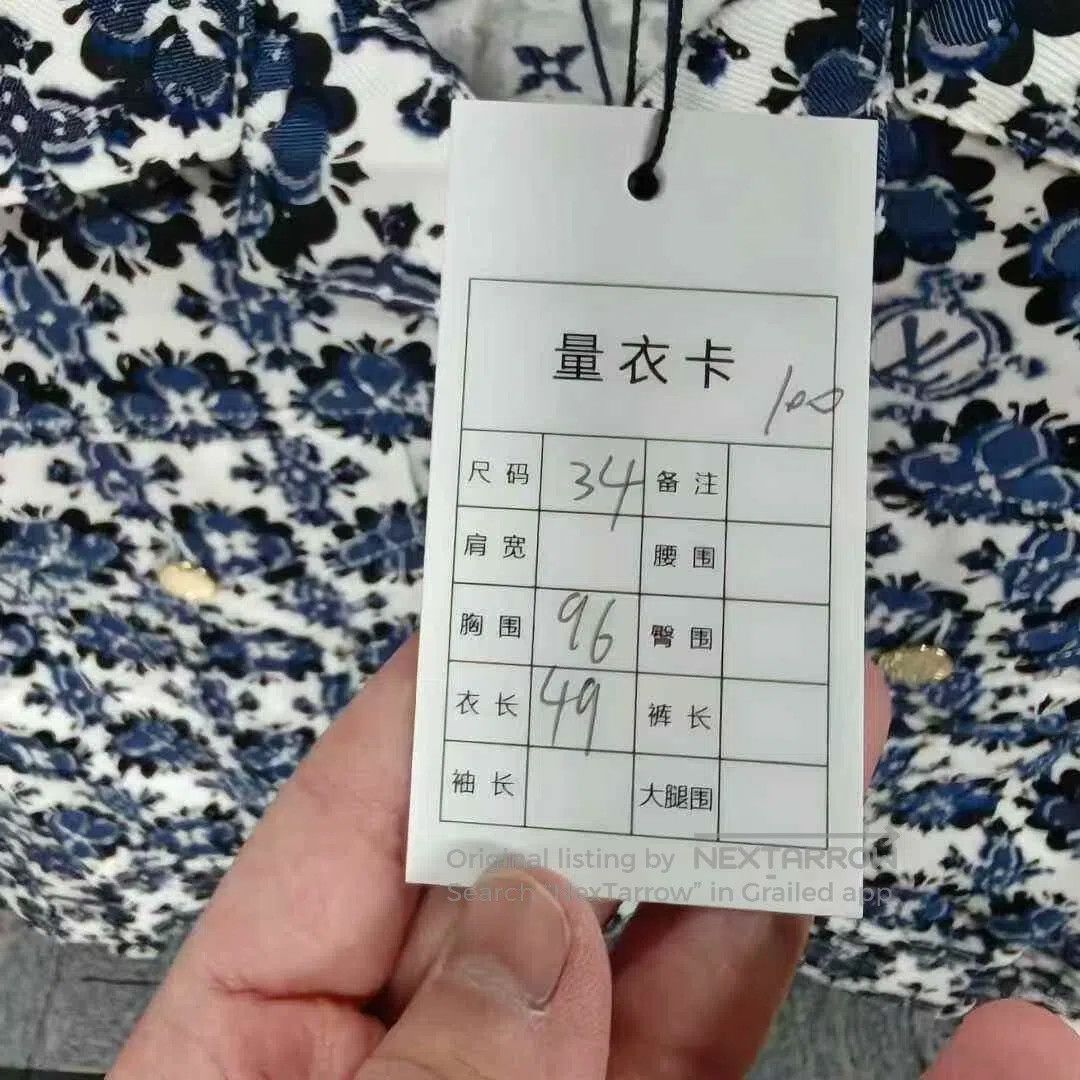 量衣卡
100
尺码 34 备注
肩宽 腰围
胸围 96 臀围
衣长 49 裤长
袖长 大腿围
Original listing by NEXTARROW
Search "NexTarrow" in Grailed app